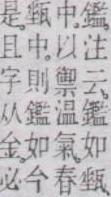 鑑注云鑑如甀
中以禦溫氣春
甀中則鑑如今
是且字从金必